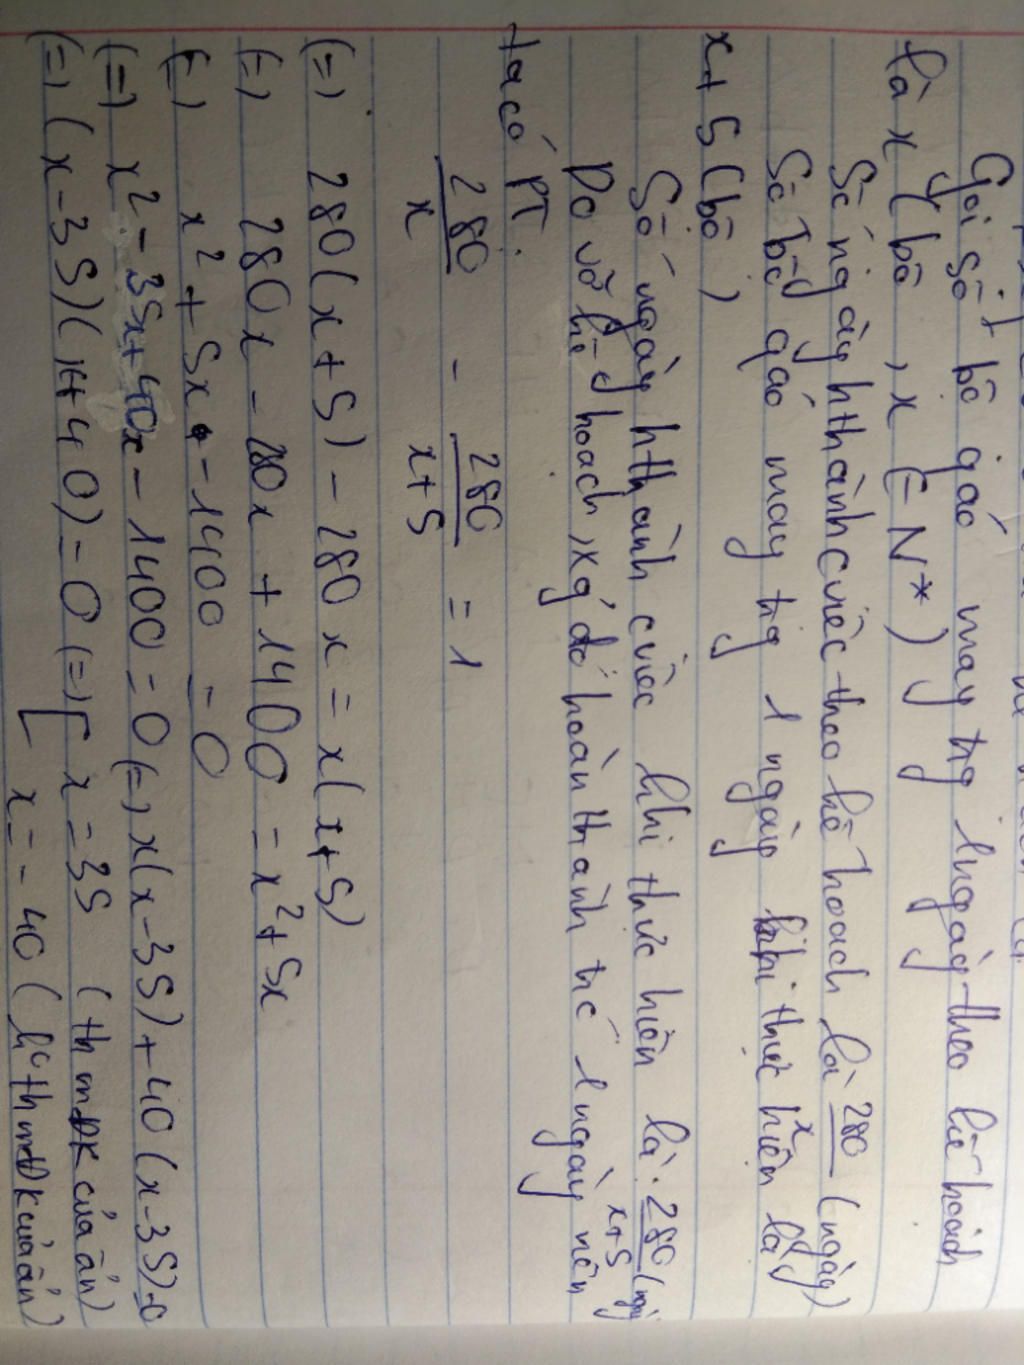 Gọi số bộ qáo may trg 1 ngày theo kế hoạch
là x (bộ, x ∈ N*)
Số ngày hthành cviệc theo kế hoạch là 280/x (ngày)
Số bộ qáo may trg 1 ngày khi thực hiện là
x+5 (bộ)
Số ngày hthành cviệc khi thực hiện là: 280/x+5 (ngày
Do vỡ kế hoạch, xg đó hoàn thành trc 1 ngày nên
ta có PT:
280/x - 280/x+5 = 1
(=) 280(x+5) - 280x = x(x+5)
(=) 280x - 280x + 1400 = x² + 5x
(=) x² + 5x - 1400 = 0
(=) x² - 35x + 40x - 1400 = 0 (=) x(x-35) + 40(x-35)=0
(=) (x-35)(x+40) = 0 (=) [ x = 35 (thmĐK của ẩn)
x = -40 (kº thmĐK của ẩn)